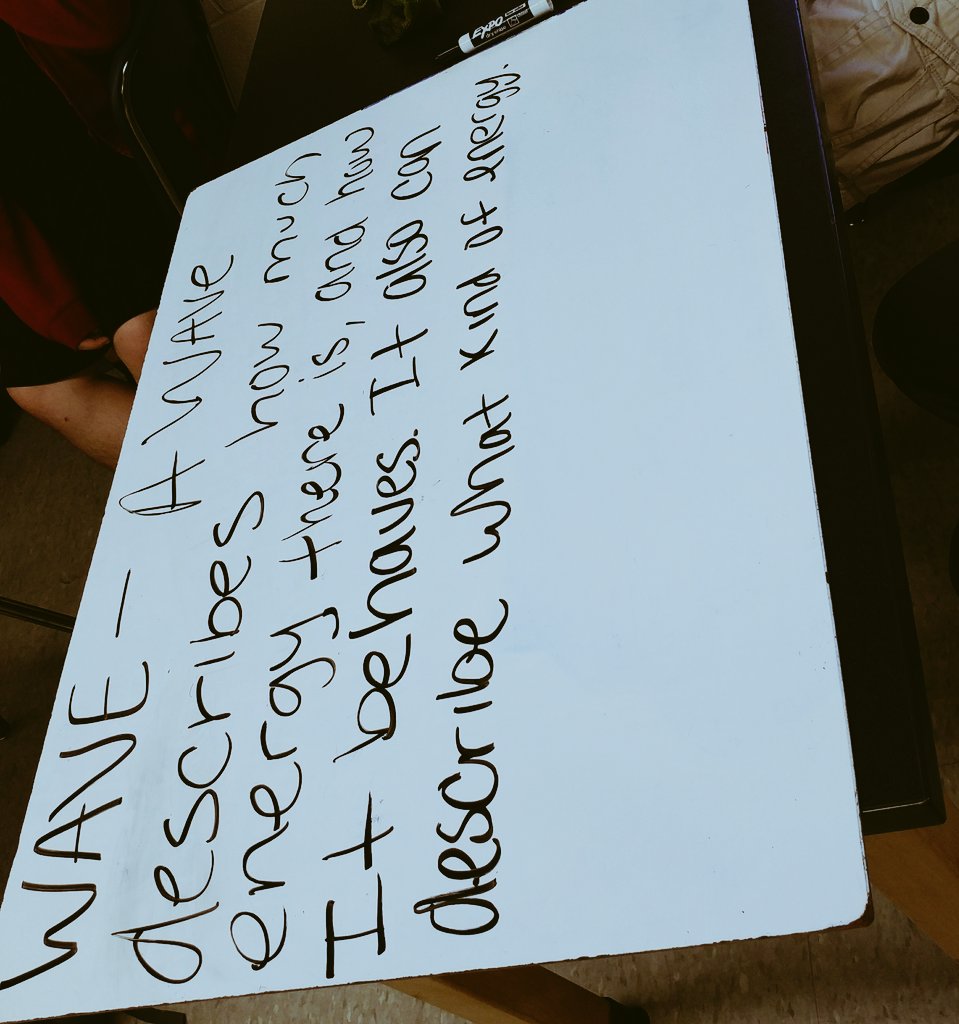 WAVE - A WAVE
describes how much
energy there is, and how
It behaves. It also can
describe what kind of energy.
EXPO